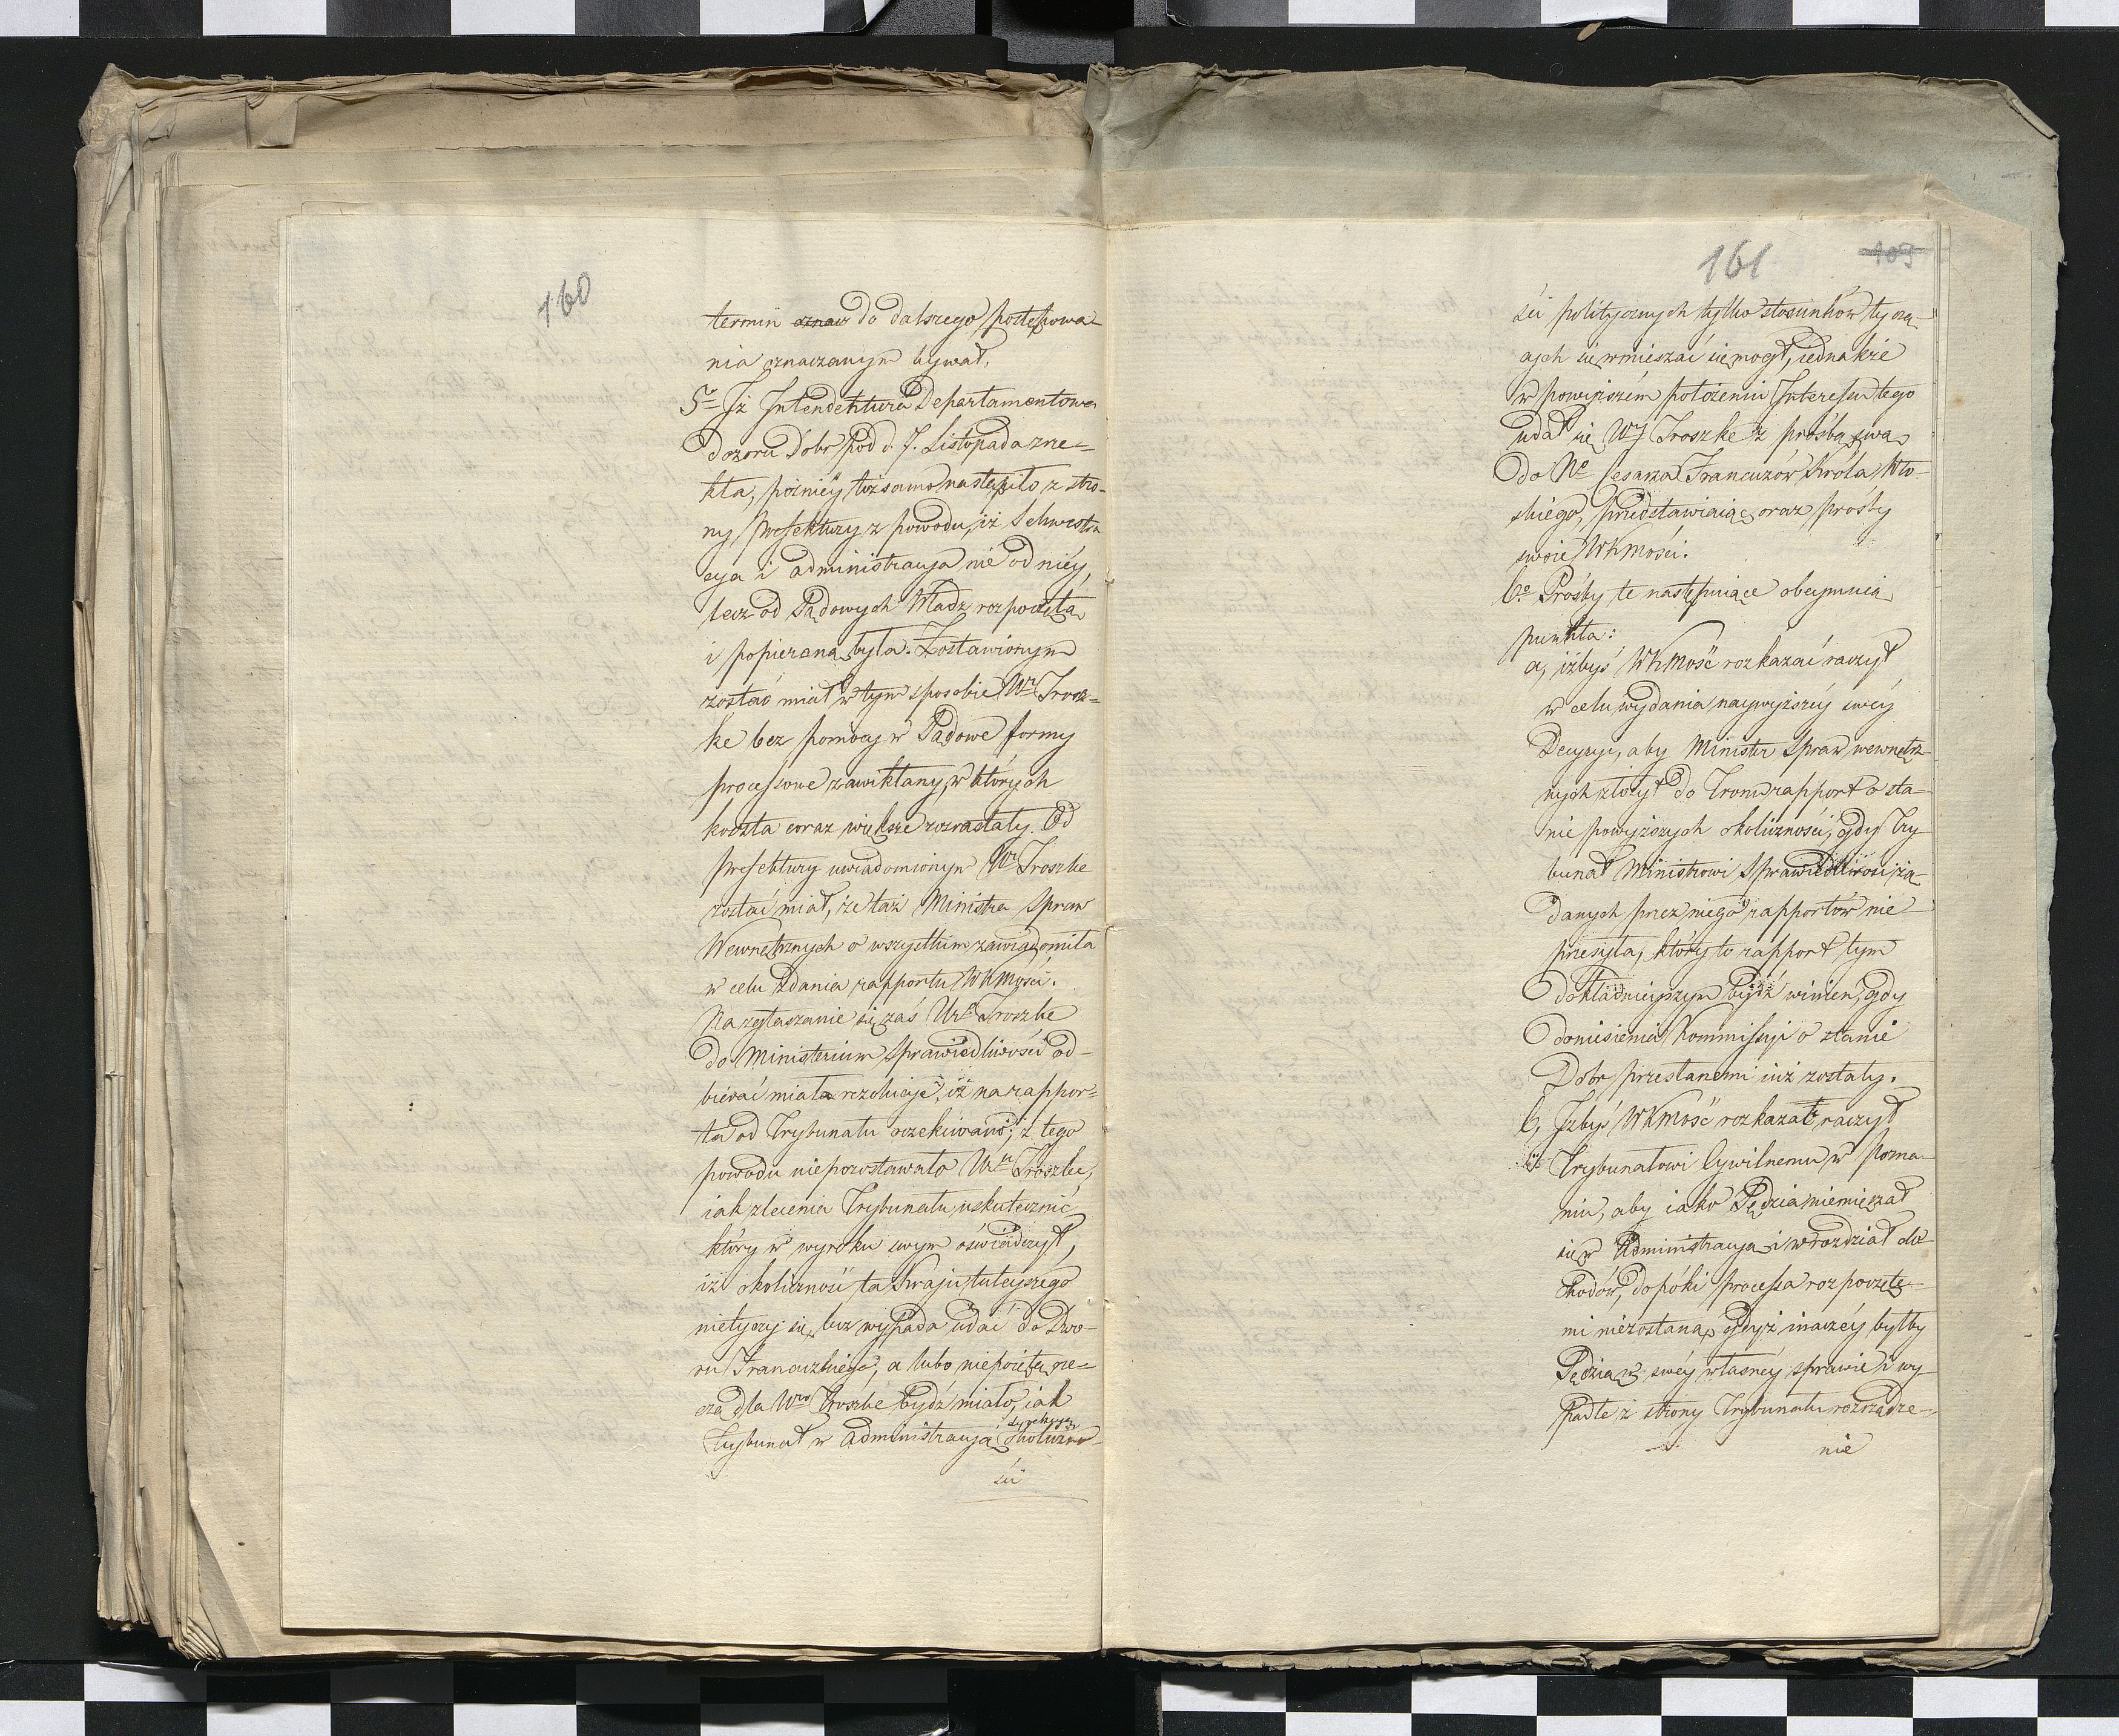 160
termin oznacz do dalszego postępowa-
nia oznaczanym bywał.
5e Iż Intendentura Departamentowa
Dozoru Dóbr pod d. 7. Listopada zrze-
kła, pózniéy tożsamo nastąpiło z stro-
ny Prefektury z powodu, iż Sekwestra
cya i administracya nie od niéy
lecz od Sądowych Władz rozpoczęta
i popierana była. Zostawionym
zostać miał w tym sposobie Wr Trosz-
ke bez pomocy w Sądowe formy
processowe zawikłany, w których
koszta coraz większe rozrastały. Od
Prefektury uwiadomionym Wr Troszke
zostać miał, że taż Ministra Spraw
Wewnętrznych o wszystkim zawiadomiła
w celu zdania rapportu WKMości.
Na zgłaszanie się zaś Ur Troszke
do Ministerium Sprawiedliwości od-
bierać miała rezolucje, iż na rappor-
ta od Trybunału oczekiwano; z tego
powodu niepozostawało Ur Troszke,
iak zlecenia Trybunału uskutecznić
który w wyroku swym oświadczył,
iż okoliczność ta Kraju tuteyszego
nietyczy się, lecz wypada udać do Dwo-
ru Francuzkiego, a lubo niepoiętą rze-
czą dla Wo Troszke bydź miało, iak
Trybunał w Administracyą Okoliczno-
ści
161
109
ści politycznych tylko stosunków tyczą-
cych się wmieszać się mogł, iednakże
w powyższém położeniu Interesu tego
udał się Wy Troszke z prośbą swą
do No Cesarza Francuzów Króla Wło-
skiego, przedstawiaiąc oraz prośby
swoie WKMości.
6e Prośby te następuiące obeymuią
punkta:
a, iżbyś WKMość rozkazać raczył
w celu wydania naywyższéy swéy
Decyzyi, aby Minister Spraw wewnętrz-
nych złożył do Tronu rapport o sta-
nie powyższych okoliczności, gdy Try
bunał Ministrowi Sprawiedliwości żą-
danych przez niego rapportów nie
przesyła, który to rapport tym
dokładnieyszym bydź winien, gdy
doniesienia Kommissyi o stanie
Dobr przesłanemi iuż zostały.
b, Iżbyś WKMość rozkazać raczył
Trybunałowi Cywilnemu w Pozna-
niu, aby iako Sędzia niemieszał
się w Administracyą i w rozdział do-
chodów, dopóki processa rozpoczęte-
mi niezostaną, gdyż inaczéy byłby
Sędzią w swéy własnéy sprawie i wy-
padłe z strony Trybunału rozrządze-
nie